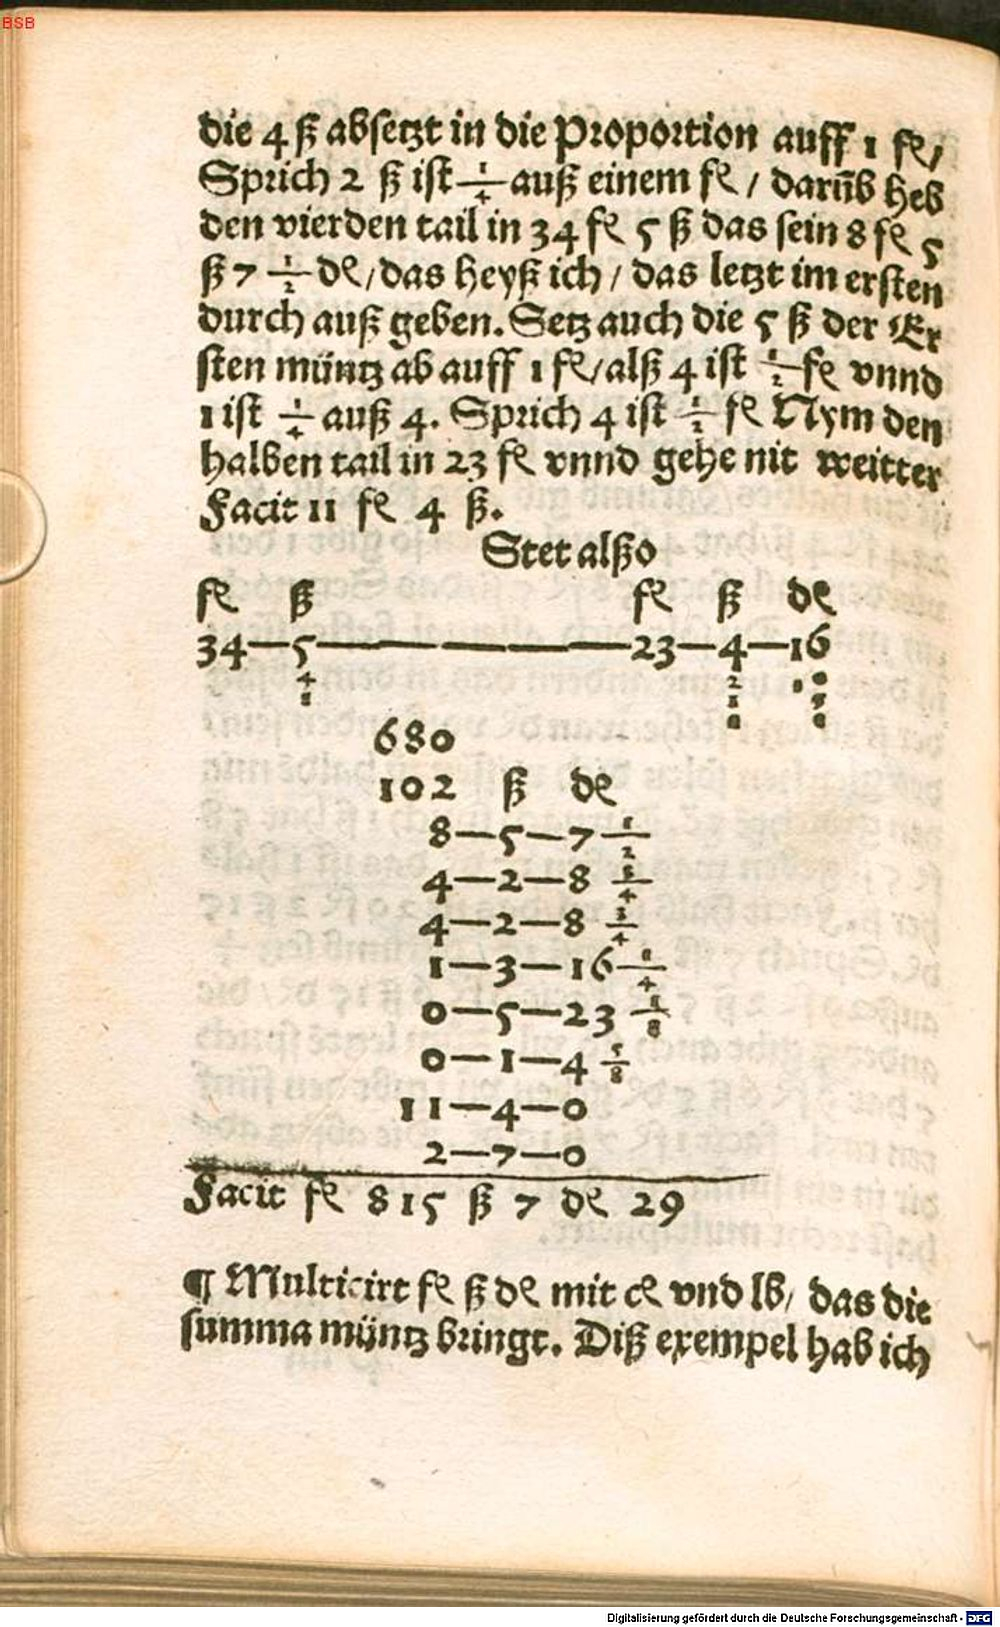 BSB
die 4 ß absetzt in die Proportion auff 1 fl/
Sprich 2 ß ist 1/4 auß einem fl / darüb heb
den vierden tail in 34 fl 5 ß das sein 8 fl 5
ß 7 1/2 dl/das heyß ich / das letzt im ersten
durch auß geben. Setz auch die 5 ß der Er
sten müntz ab auff 1 fl/alß 4 ist 1/2 fl vnnd
1 ist 1/4 auß 4. Sprich 4 ist 1/2 fl Nym den
halben tail in 23 fl vnnd gehe nit weitter
Facit 11 fl 4 ß.
Stet alßo
fl ß fl ß dl
34—5——————23—4—16
4 2
1 1
680
102 ß dl
8—5—7 1/2
4—2—8 3/4
4—2—8 3/4
1—3—16 1/4
0—5—23 1/8
0—1—4 5/8
11—4—0
2—7—0
Facit fl 815 ß 7 dl 29
¶ Multicirt fl ß dl mit cl vnd lb/ das die
summa müntz bringt. Diß exempel hab ich
Digitalisierung gefördert durch die Deutsche Forschungsgemeinschaft - DFG